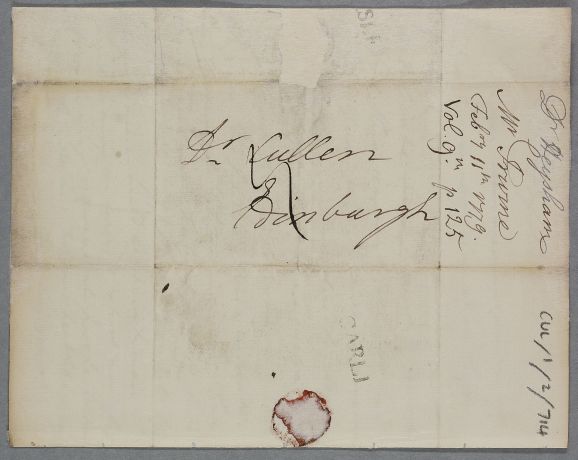 Dr Cullen
Edinburgh
Dr Heysham
Mr Irvine
Febry 11th 1779.
Vol. 9th p 125
CARLI
SLE
CUL/1/2/714